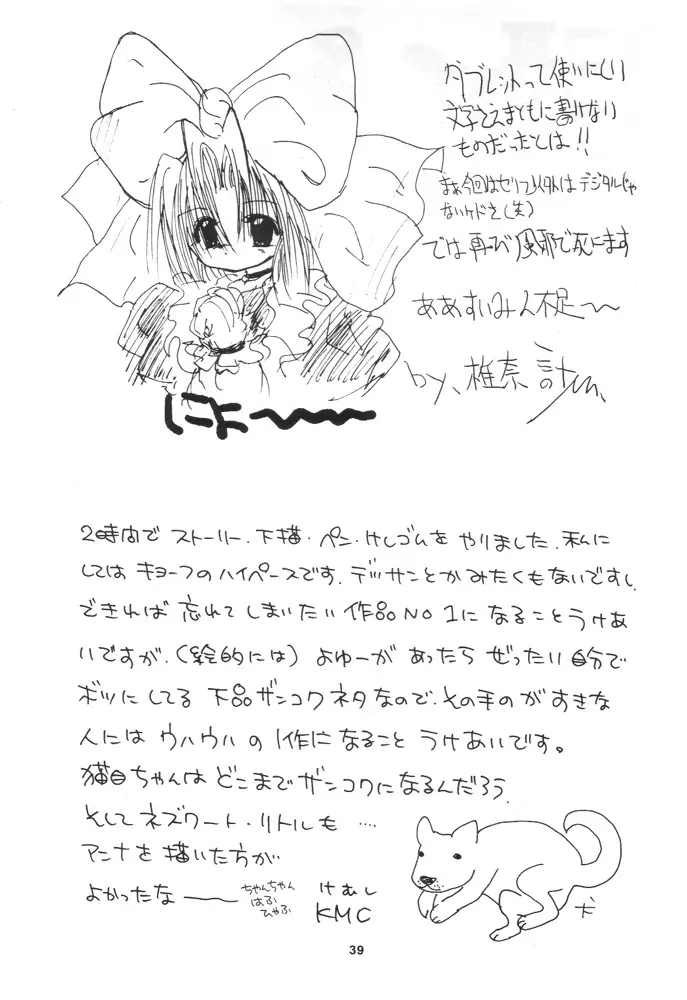 タブレットって使いにくい
文字さえまともに書けない
ものだったとは!!
まぁ今回はセリフ以外はデジタルじゃ
ないケドさ(笑)
では再び風邪で死にます
ああすいみん不足〜〜
by、椎奈
にょ〜〜〜
2時間でストーリー.下描・ペン・けしゴムをやりました.私に
してはキョーフのハイペースです.デッサンとかみたくもないですし.
できれば忘れてしまいたい作品NO1になることうけあ
いですが.(絵的には)よゆーがあったらぜったい自分で
ボツにしてる下品ザンコクネタなので、その手のがすきな
人にはウハウハの1作になることうけあいです。
猫目ちゃんはどこまでザンコクになるんだろう.
そしてネズワート・リトルも‥‥
アンナを描いた方が
よかったなー
ちゃんちゃん
はふ
ひゃふ
けむし
KMC
犬
39